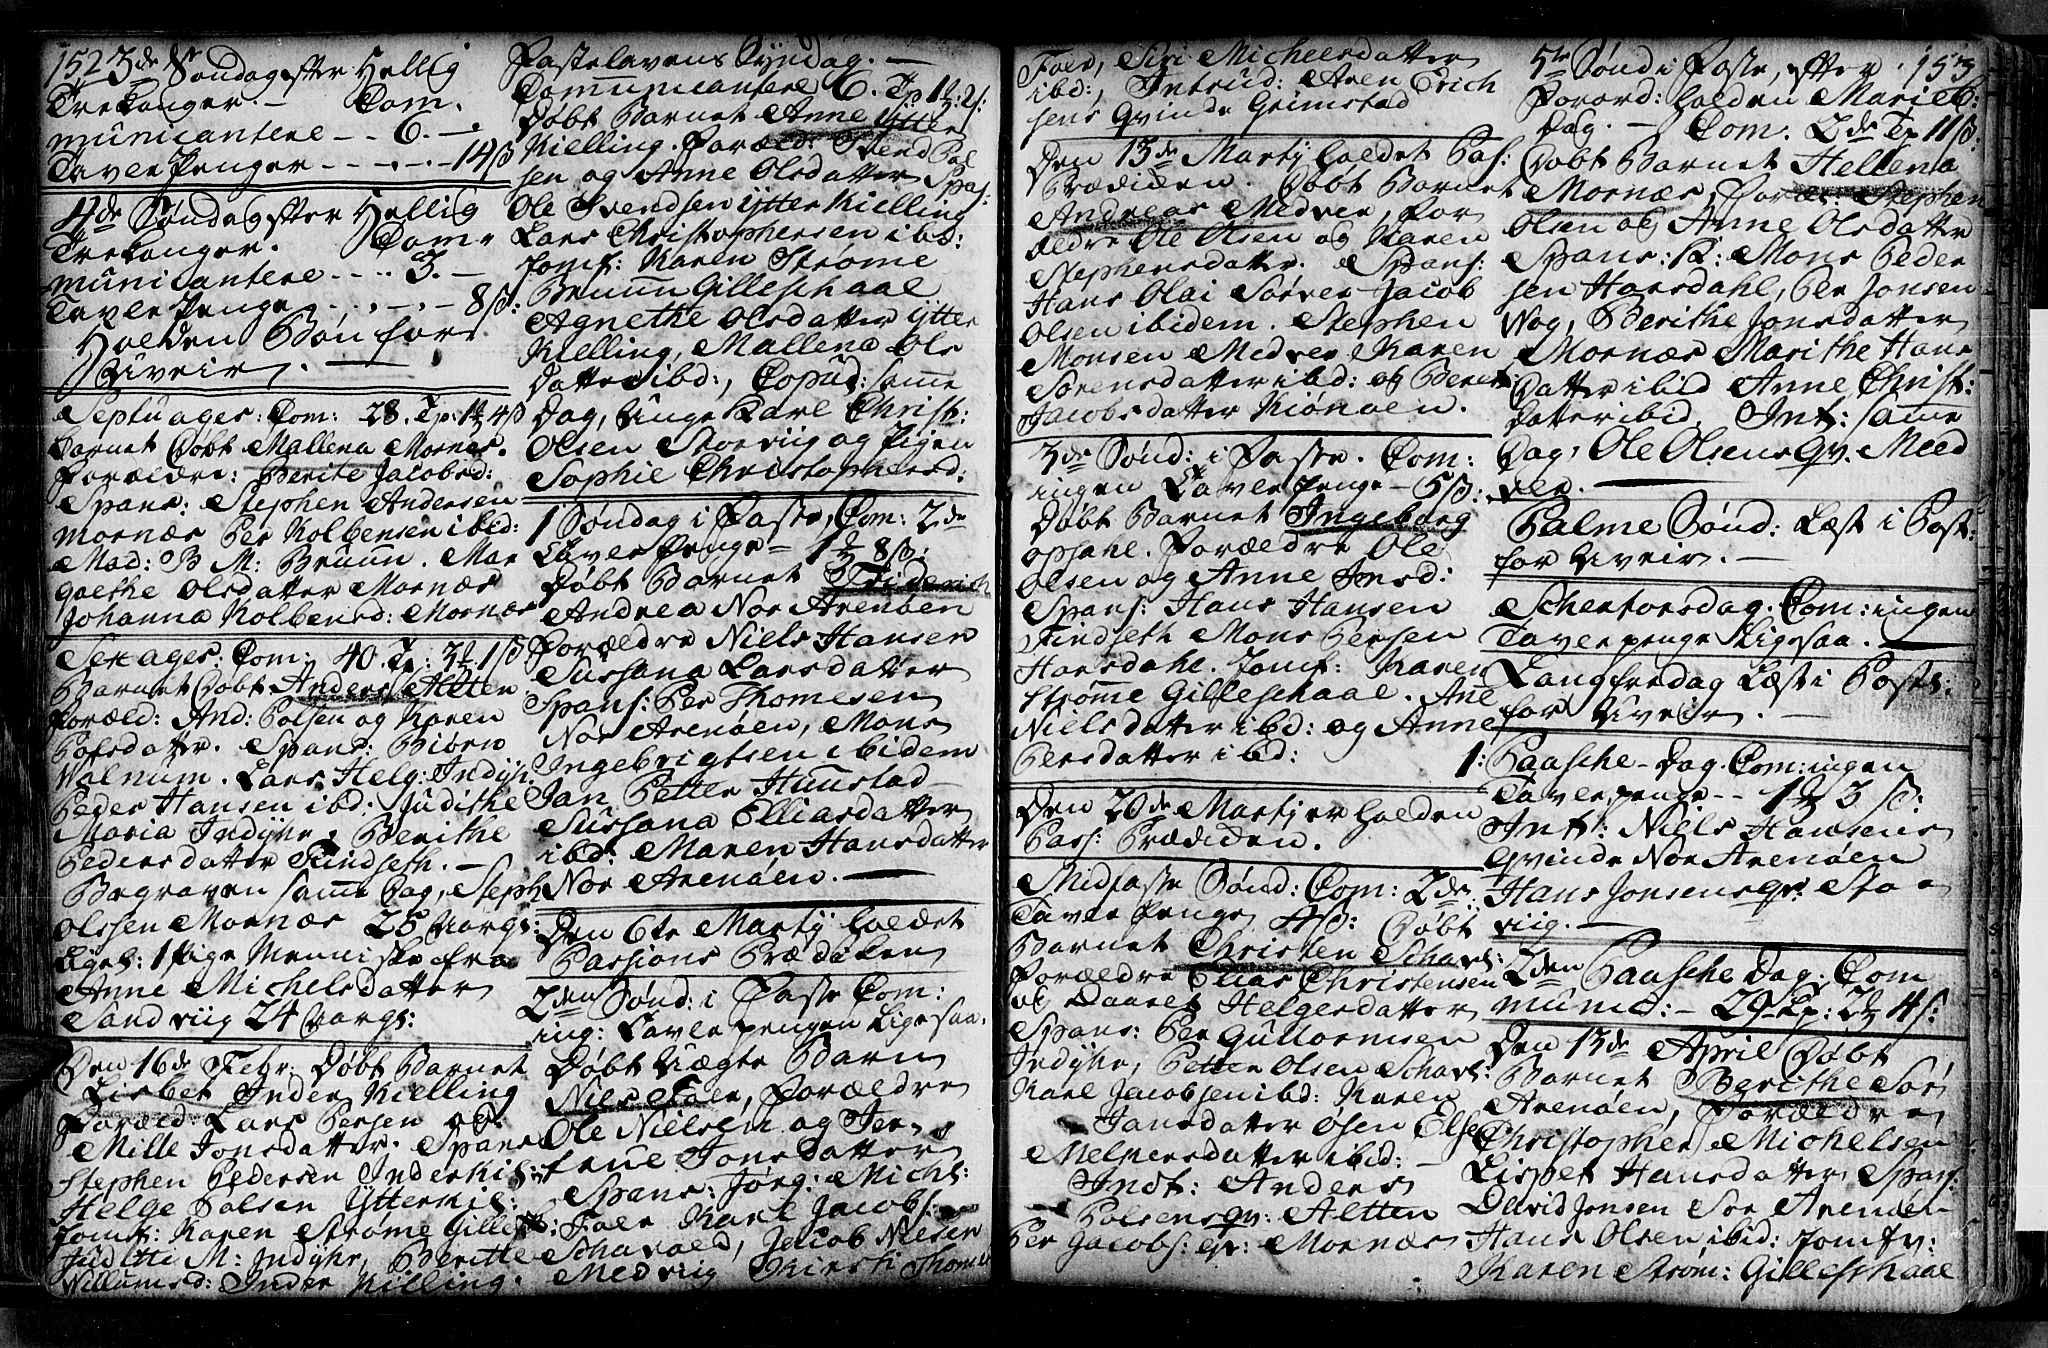 152 3de Søndag efter Hellig
Tre konger. – Com.
municantere – – 6. –
Tavle Penger – – – – 14 ß
4de Søndag efter Hellig
Tre konger. Com
municantere .... 3. –
Tavle Penge – – – 8 ß:
Holden Bøn for
Uveir. –
Septuages: Com: 28. Tp: 4 ß
Barnet Døbt Mallena Mornæs.
Forældre: Berite Jacobsd:
Spans: Stephen Andersen
Mornæs Per Kolbensen ibid:
Mad: B M: Bruun. Mar
grethe Olsdatter Mornæs
Johanna Kolbensd: Mornæs
Sexages: Com: 40. Tp: 1 ß
Barnet Døbt Anders Alten
Foræld: And: Polsen og Karen
Spans: Biørn
Valnum. Lars Helg: Indyhr
Peder Hansen ibd: Judithe
Maria Indyhr, Berithe
Pedersdatter Findseth. –
Begraven samme Dag, Steph
Olssen Mornæs 25 Aargs:
Ligel: 1 Pige Menniske fra
Anne Michelsdatter
Sandviig 24 Aargs:
Den 16de Febr: Døbt Barnet
Lisbet Inder Kielling
Foræld: Lars Persen og
Mille Jonsdatter. Spans
Stephen Pedersen Inderkil:
Helge Polsen Ytterkil:
Jomf: Karen Strøme Gillesch:
Judithe M: Indyhr, Beritte
Willumsd: Inder Killing.
Fastelavens Syndag. –
Communicantere 6. Tp 1
Døbt Barnet Anne Ytter
Kielling. Foræld: Svend Pal
sen og Anne Olsdatter Spas:
Ole Svendsen ytter Kielling
Lars Christophersen ibd:
Jomf: Karen Strøme
Bruun Gilleschaal
Agnethe Olsdatter ytter
Kielling, Mallena Ols
Datter ibd:, Copul: samme
Dag, Unge Karl Christ:
Olsen Storviig og Pigen
Sophie Christophersd:
1 Søndag i Faste, Com: 2de
Tavle Penge – 1 8 ß:
Døbt Barnet Friderich
Andrea Nor Arenøen
Forældre Niels Hansen
Sussana Larsdatter
Spans: Per Thomesen
Nor Arenøen, Mons
Ingebrigtsen ibidem
Jan Petter Hunstad
Sussana Elliasdatter
ibd: Maren Hansdatter
Nor Arenøen. –
Den 6te Martij holdet
Passions Prædiken
2den Sønd: i Faste Com:
ing: Tavle pengen Ligesaa.
Døbt Uægte Barn
Niels Foer, Forældre
Ole Nielsen og Jer
Jonsdatter
Spans: Jørg: Michs:
Foer Karl Jacobs:
Schavold, Jacob Nielsen
Medviig Kirsti Thoms
Foer, Siri Micheelsdatter
ibd:, Introd: Aren Erich
sens Qvinde Grimstad
Den 13de Martij holdet Pas:
Prædiken. Døbt Barnet
Andreas Medver, For
ældre Ole Olsen og Karen
Stephensdatter. Spans:
Hans Olai Sørver Jacob
Olsen ibidem. Stephen
Monsen Medver Karen
Sørensdatter ibd: og Beret
Jacobsdatter Kiønøen.
3de Sønd: i Faste. Com:
ingen Tavle Penge – 5 ß:
Døbt Barnet Ingeborg
Opsahl. Forældre Ole
Olsen og Anne Jonsd:
Spans: Hans Hansen
Findseth Mons Persen
Harsdahl. Jomf: Karen
Strømme Gilleschaal. Ane
Nielsdatter ibd: og Anne
Persdatter ibd:
Den 20de Martij holden
Pass: Prædiken.
Midfaste Sønd: Com: 2de
Tavle Penge 4 ß: Døbt
Barnet Christen Schavl:
Forældre Elias Christensen
og Maaret Helgesdatter
Spans: Per Gullormsen
Indyhr, Petter Olsen Schavl:
Karl Jacobsen ibd: Karen
Jansdatter Øsen Else
Melpersdatter ibid: –
Indt: Anders
Polsens qv: Altten
Per Jacobs: qv: Mornæs
5te Sønd i Faste, efter 153
Forord: holden Mariæ B:
Dag. – Com. 2de Tp 11 ß:
Døbt Barnet Hellena
Mornæs, Foræl: Stephen
Olsen og Anne Olsdatter
Spans: R: Mons Peder
sen Harsdahl, Per Jonsen
Nog, Berithe Jonsdatter
Mornæs Marithe Hans
Datter ibid Anne Christ:
Datter ibid. Int: samme
Dag, Ole Olsens qv. Meed
ver. –
Palme Sønd: Læst i Post:
for Uveir. –
Schertorsdag. Com: ingen
Tavle penge Ligesaa. –
Langfredag Læst i Post:
for Uveir. –
1: Paasche-Dag. Com: ingen
Tavle penge – – 1 3 ß:
Int: Niels Hansens
Qvinde Nor Arenøen
Hans Jonsens qv: Stor
viig. –
2den Paasche Dag. Com
munic: – 29 Tp: 2 4 ß:
Den 13de April Døbt
Barnet Berithe Sør
Arenøen, Forældre
Christopher Michelsen
Lispet Hansdatter Spans:
David Jonsen Sør Arenøen
Hans Olsen ibid: Jomfr:
Karen Strøm: Gilleschaal